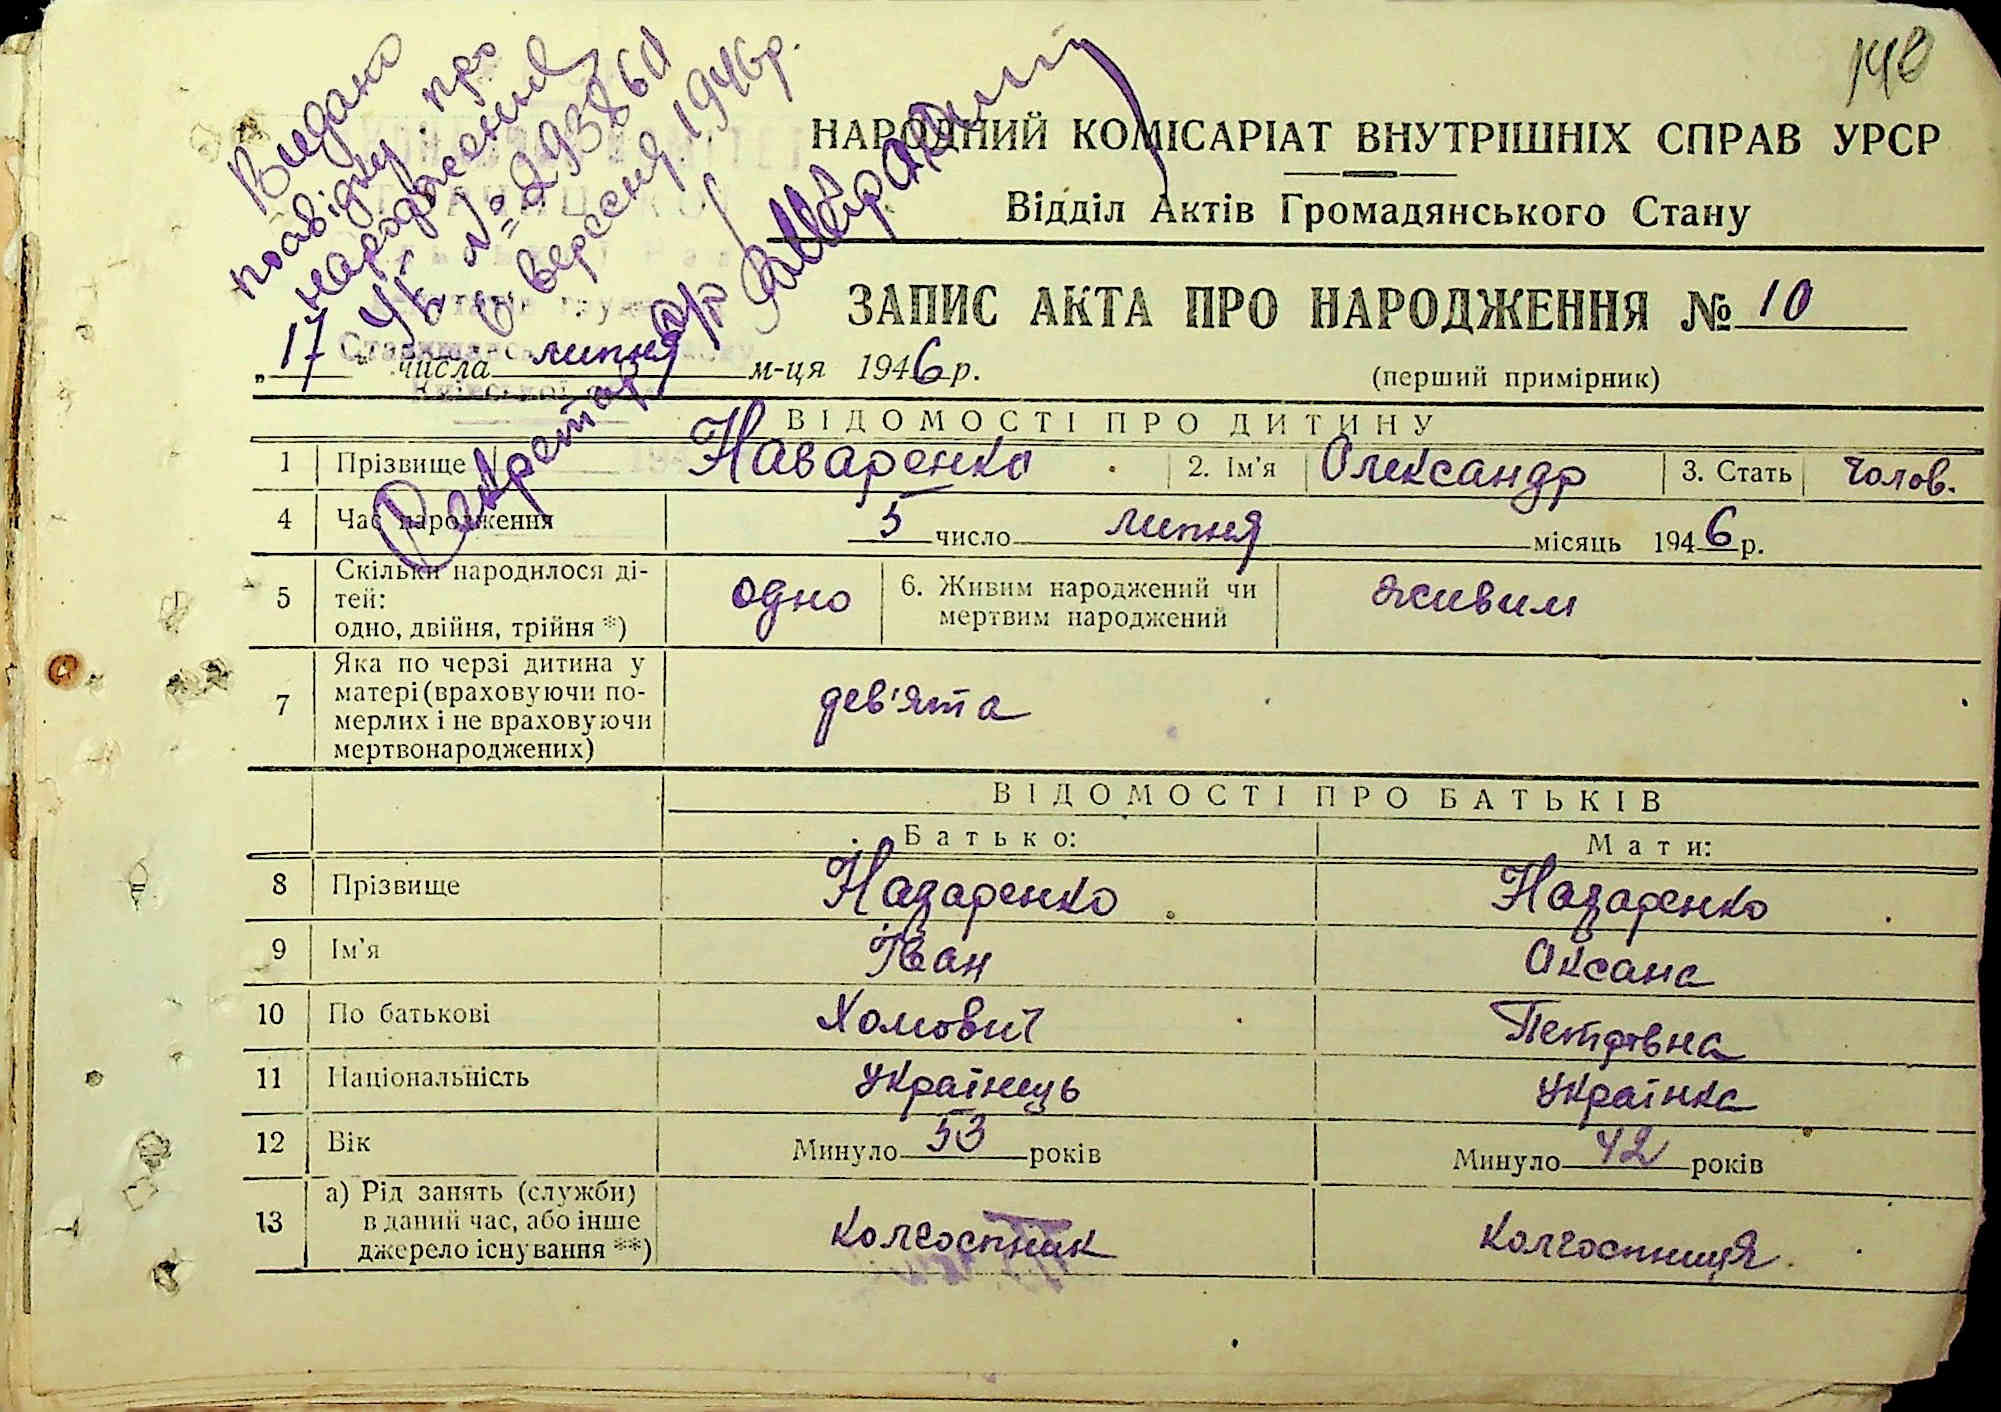 140
Видано
повідку про
народження
УБ № 293860
6 вересня 1946р.
Секретар
НАРОДНИЙ КОМІСАРІАТ ВНУТРІШНІХ СПРАВ УРСР
Відділ Актів Громадянського Стану
ЗАПИС АКТА ПРО НАРОДЖЕННЯ № 10
„17" числа липня м-ця 1946 р.
(перший примірник)
ВІДОМОСТІ ПРО ДИТИНУ
1 Прізвище Наваренко 2. Ім'я Олександр 3. Стать Чолов.
4 Час народження 5 число липня місяць 1946 р.
5 Скільки народилося ді-
тей:
одно, двійня, трійня *) одно 6. Живим народжений чи
мертвим народжений живим
7 Яка по черзі дитина у
матері (враховуючи по-
мерлих і не враховуючи
мертвонароджених) дев'ята
ВІДОМОСТІ ПРО БАТЬКІВ
Батько: Мати:
8 Прізвище Назаренко Назаренко
9 Ім'я Іван Оксана
10 По батькові Хомович Петрівна
11 Національність Українець Українка
12 Вік Минуло 53 років Минуло 42 років
13 а) Рід занять (служби)
в даний час, або інше
джерело існування **) Колгоспник Колгоспниця